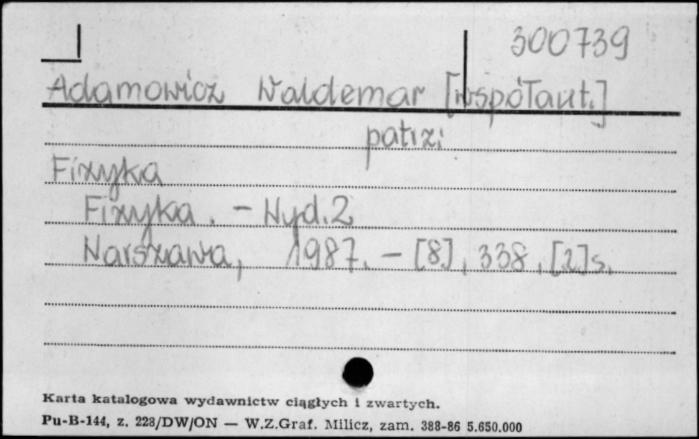 300739
Adamowicz Waldemar [współaut.]
patrz:
Fizyka
Fizyka. - Wyd.2
Warszawa, 1987. - [8], 338, [2]s.
Karta katalogowa wydawnictw ciągłych i zwartych.
Pu-B-144, z. 228/DW/ON — W.Z.Graf. Milicz, zam. 388-86 5.650.000